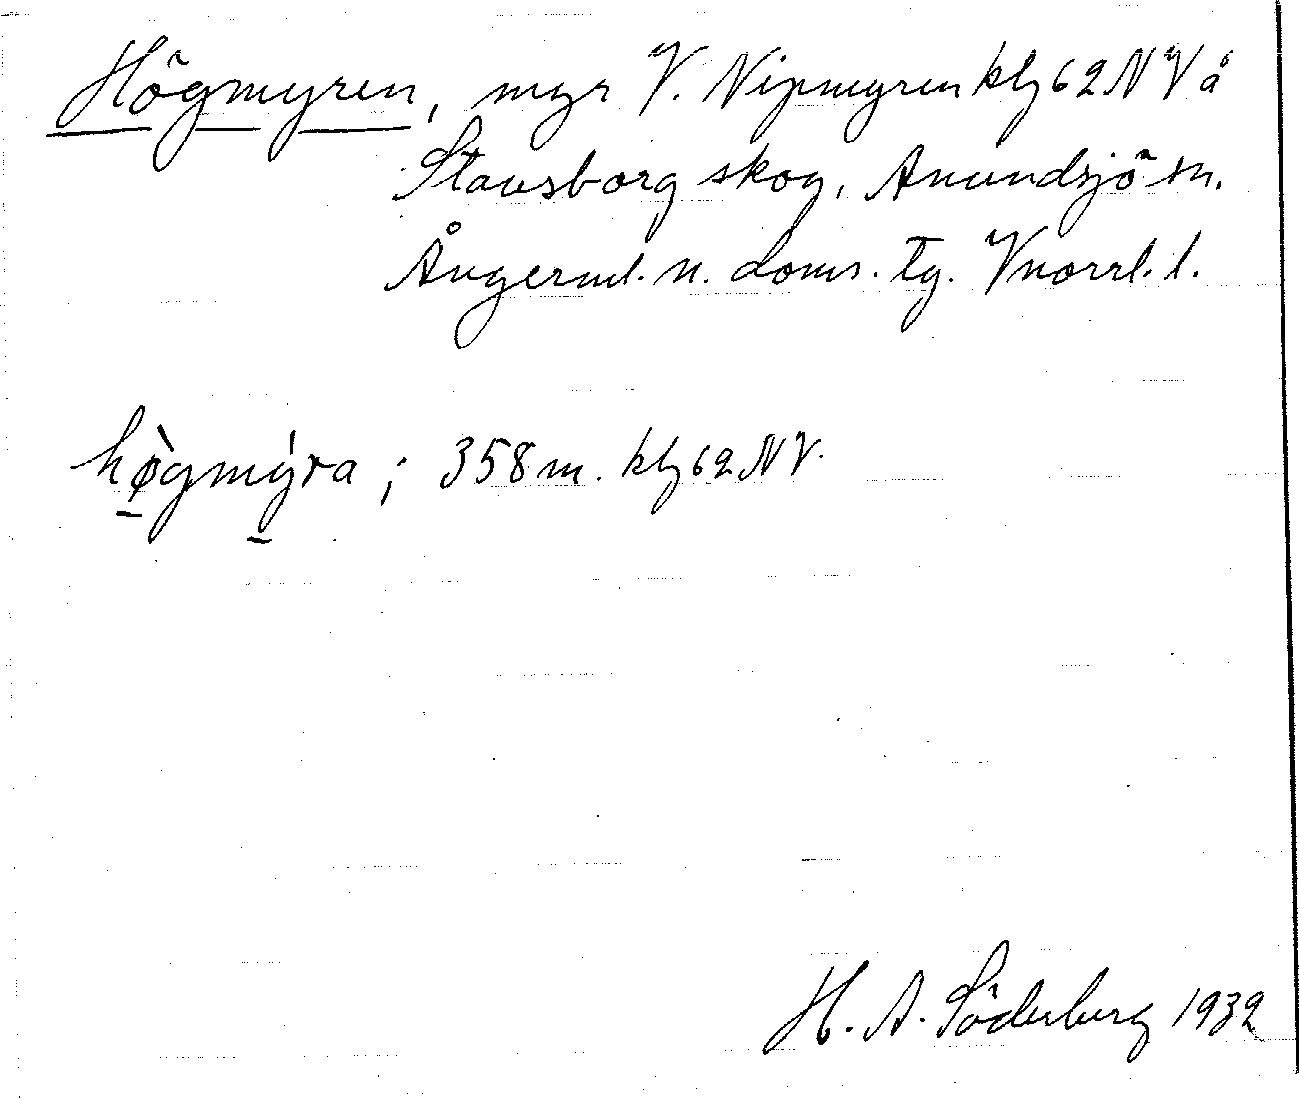 Högmyren, myr V. Nipmyren kbz 62 NV å
Stavsborg skog, Anundsjö sn.
Ångerml. n. doms. tg. Vnorrl. l.
hø̀gmýra; 358 m. kbz 62 NV.
H. A. Söderberg 1932